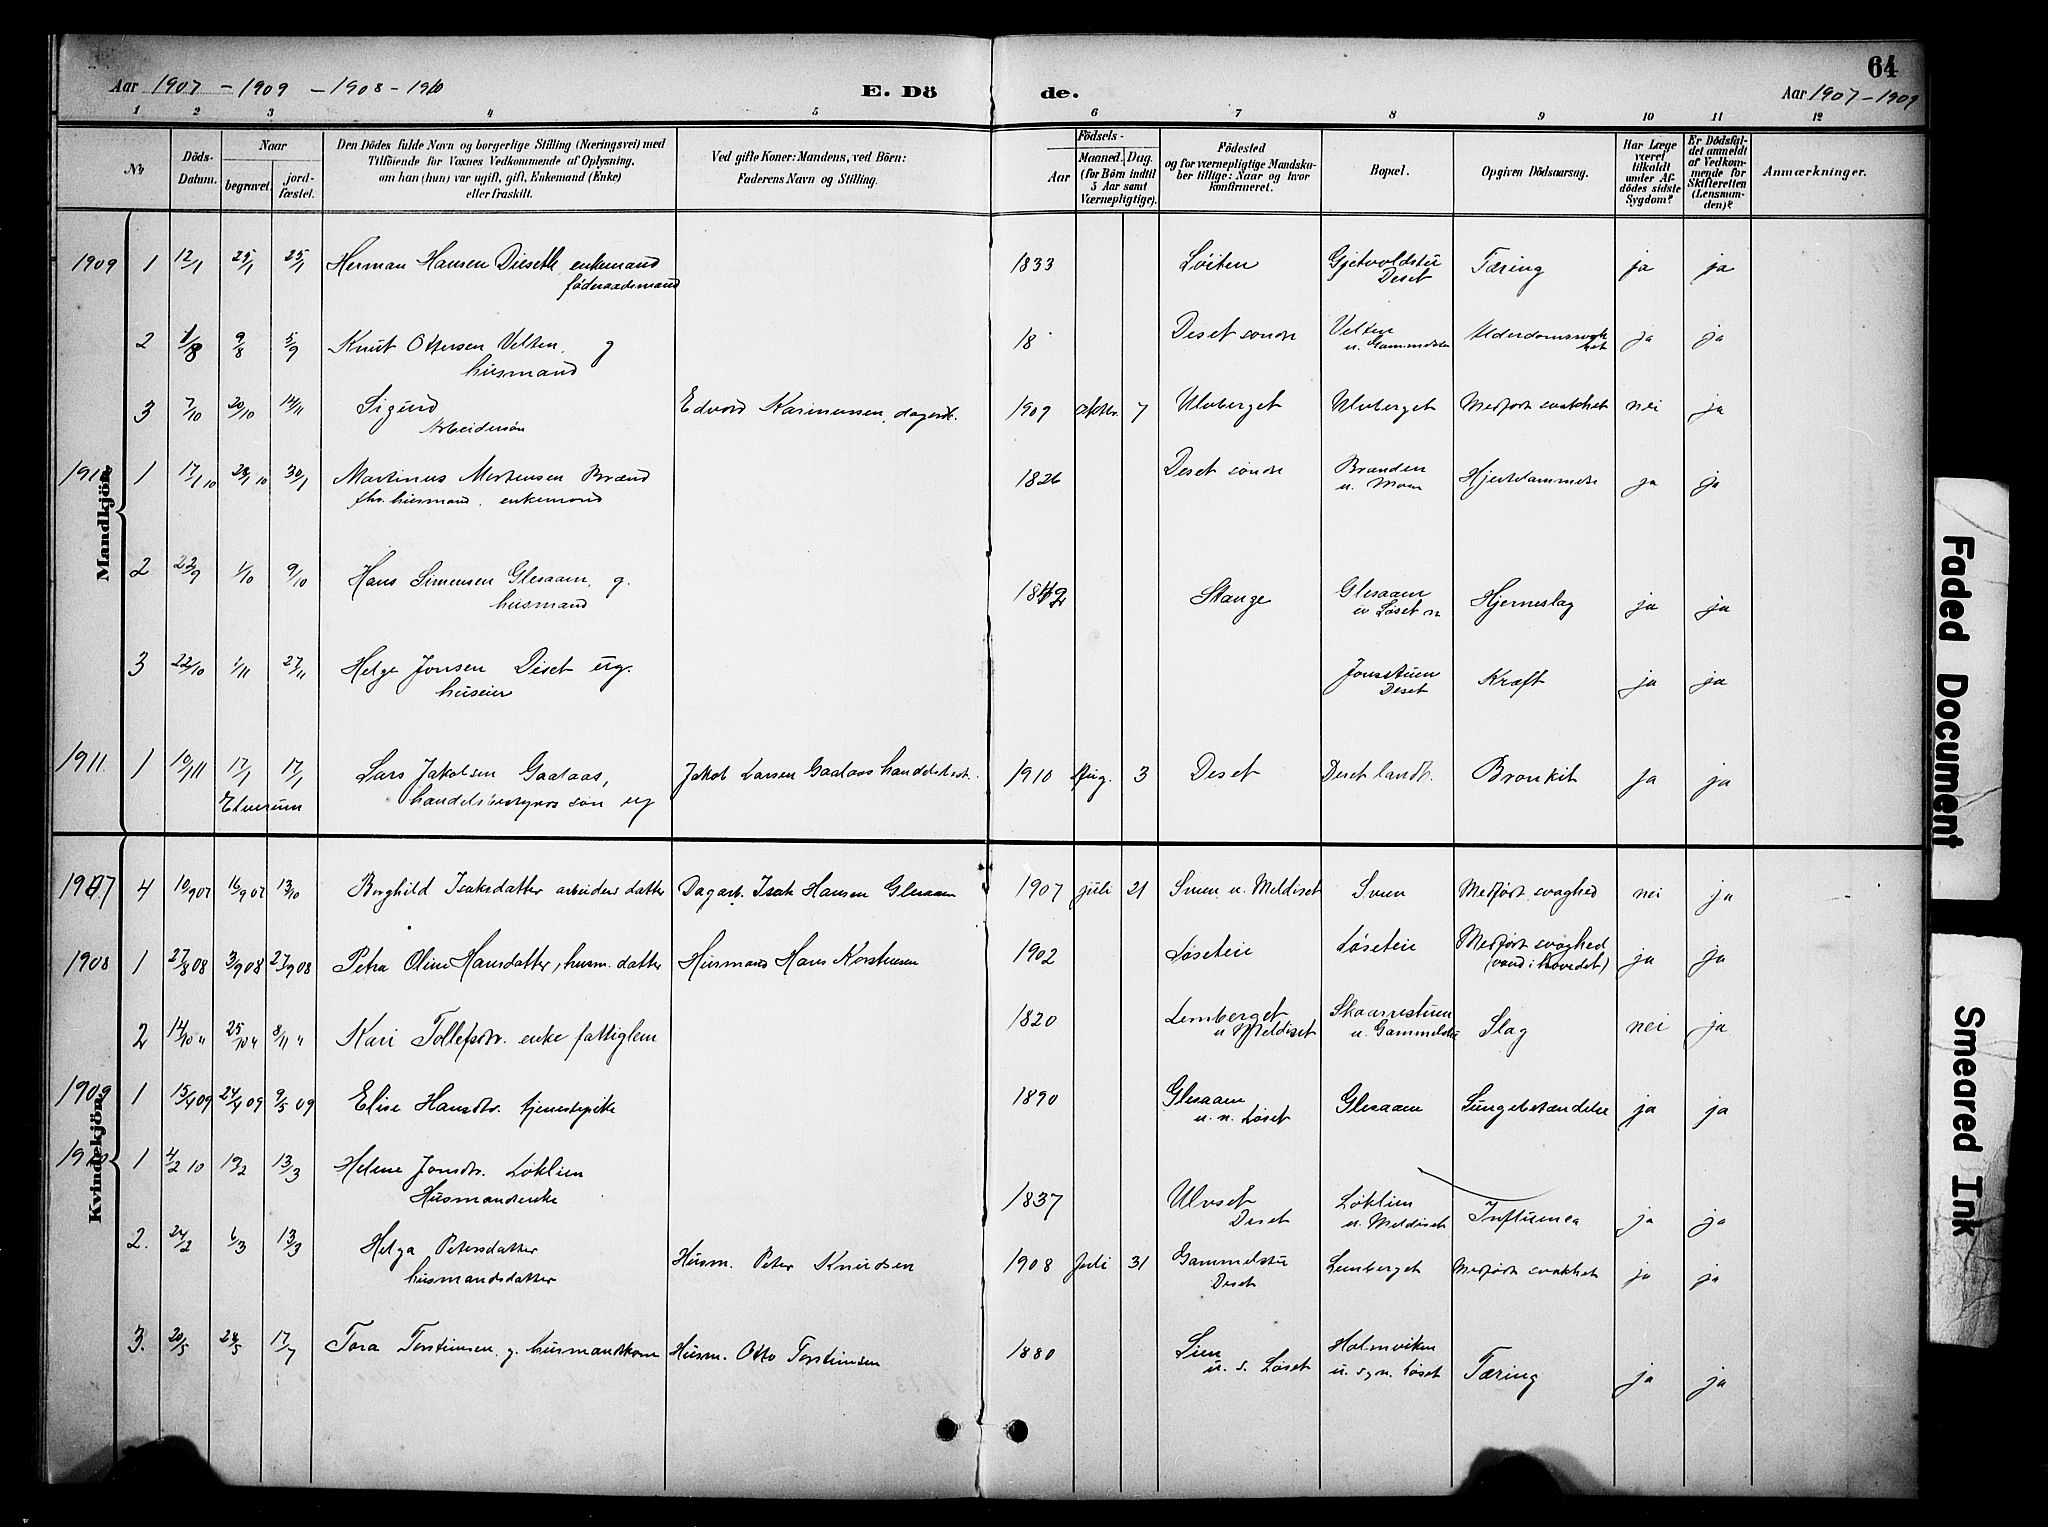 64
Aar 1907 - 1909 - 1908 - 1910 E. Dö de. Aar 1907 - 1909
1 2 3 4 5 6 7 8 9 10 11 12
No Döds-Datum. Naar begravet. jordfæstet. Den Dödes fulde Navn og borgerlige Stilling (Næringsvei) med Tilföiende for Voxnes Vedkommende af Oplysning, om han (hun) var ugift, gift, Enkemand (Enke) eller fraskilt. Ved gifte Koner: Mandens, ved Börn: Faderens Navn og Stilling. Födsels- Aar Maaned. Dag. (for Börn indtil 5 Aar samt Værnepligtige). Födested og for værnepligtige Mandskaber tillige: Naar og hvor konfirmeret. Bopæl. Opgiven Dödsaarsag. Har Læge været tilkaldt under Afdödes sidste Sygdom? Er Dödsfaldet anmeldt af Vedkommende for Skifteretten (Lensmanden)? Anmærkninger.
Mandkjön.
1909 1 12/1 25/1 25/1 Herman Hansen Dieseth, enkemand föderaadsmand 1833 Löiten Deset Tæring ja ja
2 1/8 9/8 5/9 Knut Ottersen Velten, g husmand 18 Deset søndre Velten u. Gammelstu ja ja
3 7/10 20/10 14/11 Sigurd Arbeidersøn Edvard Rasmussen, dagarb. 1909 oktbr. 7 Ulvberget Ulvberget Medfødt svakhet nei ja
1910 1 17/1 10 28/1 10 30/1 Martinus Mortensen Brænd fhv. husmand, enkemand 1826 Deset søndre Brænden u. Moen ja ja
2 22/9 1/10 9/10 Hans Simensen Glesaaen, g. husmand Stange Glesaaen Hjerneslag ja ja
3 22/10 1/11 27/11 Helge Jonsen Diset ug. huseier Jonsstuen Deset Kræft ja ja
1911. 1 10/1 11 17/1 17/1 Elverum Lars Jakobsen Gaalaas, handelsbestyrers søn ug Jakob Larsen Gaalaas handelsbest. 1910 Aug. 3 Deset Deset landh. Bronkit ja ja
Kvindekjön.
1907 4 10/9 07 16/9 07 13/10 Borghild Isaksdatter arbeiders datter Dagarb. Isak Hansen Glesaaen 1907 juli 21 Sveen u. Meldiset Sveen Medfødt svaghed nei ja
1908 1 27/8 08 3/9 08 27/9 08 Petra Oline Hansdatter, husm. datter Husmand Hans Korstuen 1902 Løseteie Løseteie Medfødt svaghed (vand i hovedet) ja ja
2 14/10 " 25/10 " 8/11 " Kari Tollefsdtr. enke fattiglem 1820 Lemberget u Meldiset u. Gammelstu Slag nei ja
1909 1 15/4 09 24/4 09 9/5 09 Elise Hansdtr. tjenestepike 1890 Glesaaen u. n. Løset Glesaaen Lungebetændelse ja ja
1910 1 4/2 10 19/2 13/3 Helene Jonsdtr. Løklien Husmandsenke 1837 Ulvset Deset Løklien u. Meldiset Influensa ja ja
2. 24/2 6/3 13/3 Helga Petersdatter husmandsdatter Husm. Peter Knudsen 1908 Juli 31 Gammelstu Deset Lemberget Medfødt svakhet ja ja
3. 20/5 28/5 17/7 Tora Torstensen g. husmandkone Husm. Otto Torstensen 1880 Lien u. s. Løset Holmviken Tæring ja ja
Faded Document
Smeared Ink